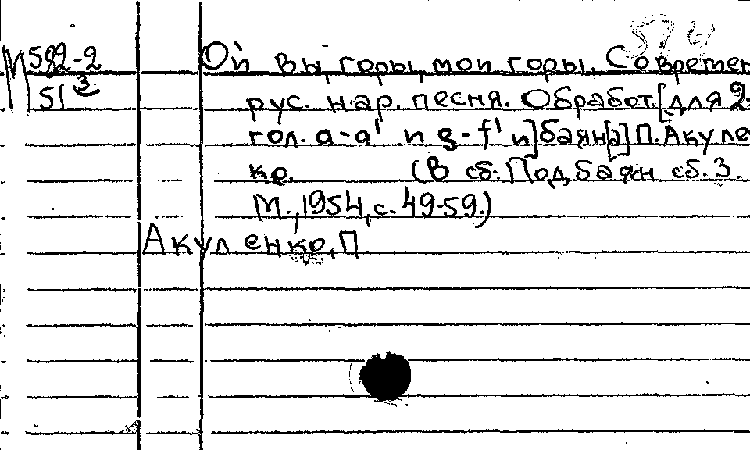 М 592-2
51 3
Ой вы, горы, мои горы. Современ
рус. нар. песня. Обработ. [для 2-
гол. a-a' и g-f' и] баян[а] П. Акуле
ко. (В сб.: Под баян сб. 3.
М., 1954, с. 49-59.)
Акуленко, П